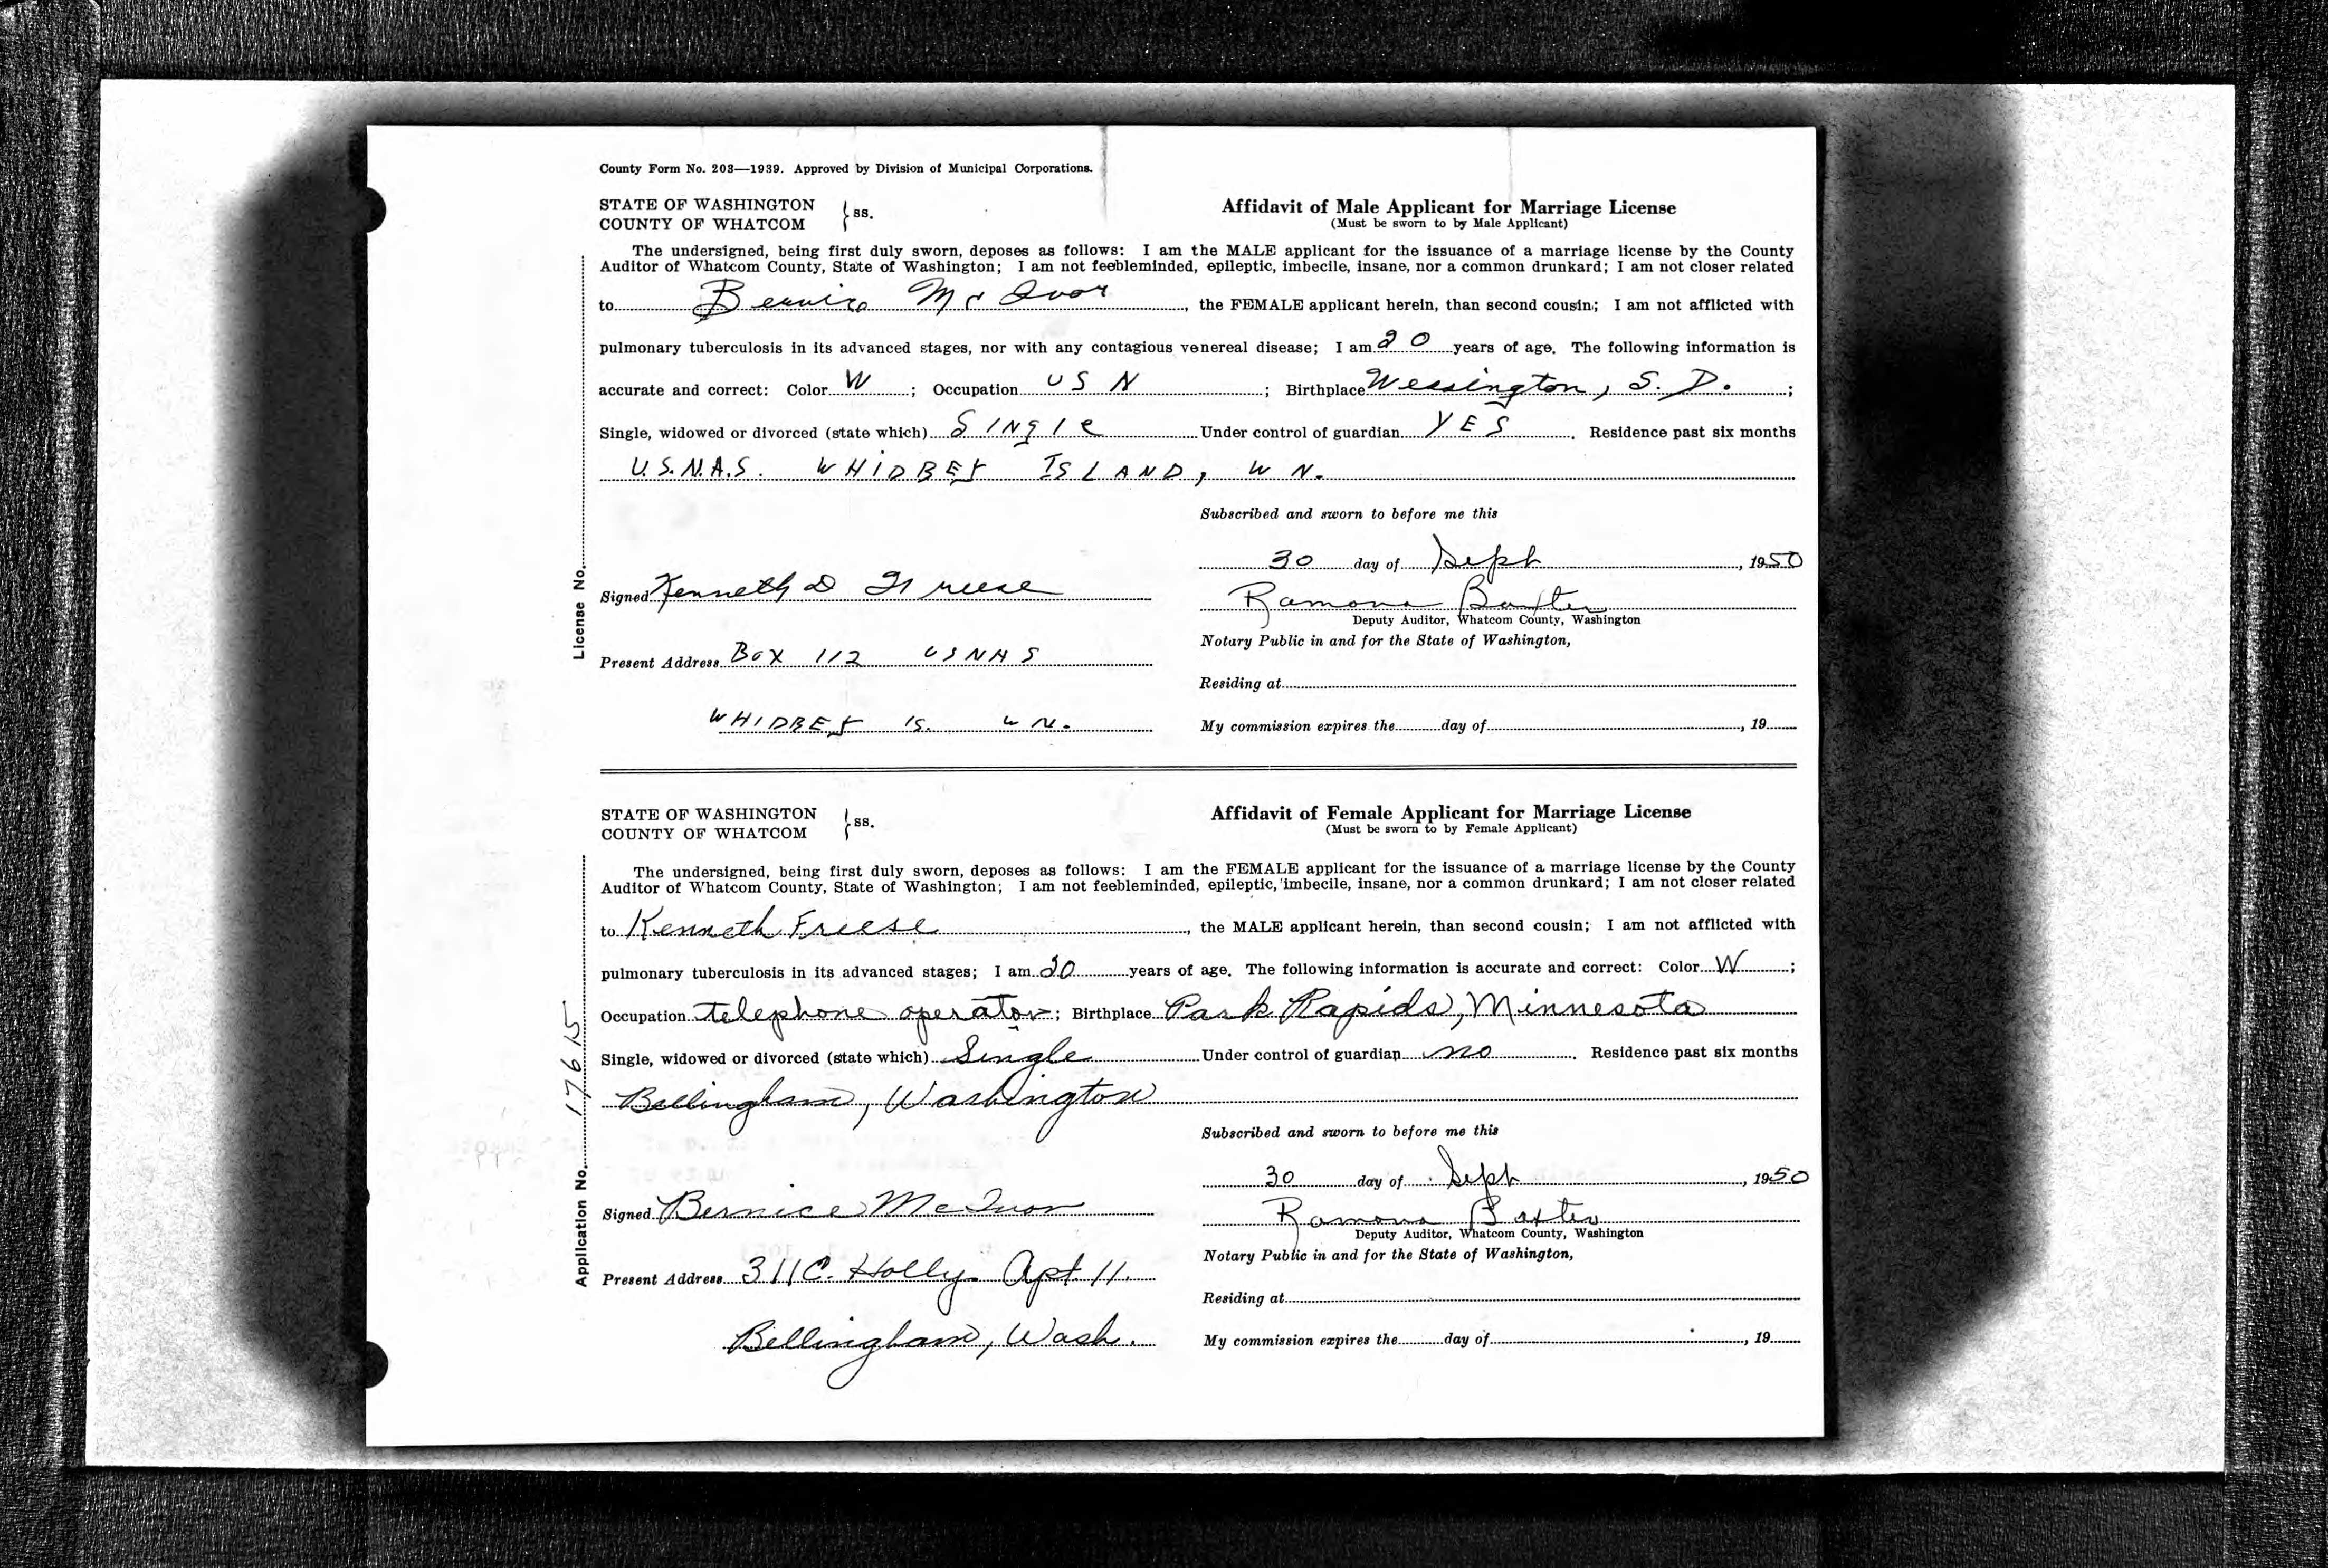 County Form No. 203—1939. Approved by Division of Municipal Corporations.
STATE OF WASHINGTON
COUNTY OF WHATCOM } ss.
Affidavit of Male Applicant for Marriage License
(Must be sworn to by Male Applicant)
The undersigned, being first duly sworn, deposes as follows: I am the MALE applicant for the issuance of a marriage license by the County
Auditor of Whatcom County, State of Washington; I am not feebleminded, epileptic, imbecile, insane, nor a common drunkard; I am not closer related
to Bernice McIvor, the FEMALE applicant herein, than second cousin; I am not afflicted with
pulmonary tuberculosis in its advanced stages, nor with any contagious venereal disease; I am 20 years of age. The following information is
accurate and correct: Color W; Occupation USN; Birthplace Wessington, S.D.;
Single, widowed or divorced (state which) Single Under control of guardian YES. Residence past six months
U.S.N.A.S. WHIDBEY ISLAND, WN.
Subscribed and sworn to before me this
30 day of Sept, 1950
Signed Kenneth D Freese
Ramona Baxter
Deputy Auditor, Whatcom County, Washington
Notary Public in and for the State of Washington,
Present Address Box 112 USNAS
Residing at
WHIDBEY IS. WN.
My commission expires the day of , 19
License No.
STATE OF WASHINGTON
COUNTY OF WHATCOM } ss.
Affidavit of Female Applicant for Marriage License
(Must be sworn to by Female Applicant)
The undersigned, being first duly sworn, deposes as follows: I am the FEMALE applicant for the issuance of a marriage license by the County
Auditor of Whatcom County, State of Washington; I am not feebleminded, epileptic, imbecile, insane, nor a common drunkard; I am not closer related
to Kenneth Freese, the MALE applicant herein, than second cousin; I am not afflicted with
pulmonary tuberculosis in its advanced stages; I am 20 years of age. The following information is accurate and correct: Color W;
Occupation telephone operator; Birthplace Park Rapids, Minnesota
Single, widowed or divorced (state which) Single Under control of guardian no. Residence past six months
Bellingham, Washington
Subscribed and sworn to before me this
30 day of Sept, 1950
Signed Bernice McIvor
Ramona Baxter
Deputy Auditor, Whatcom County, Washington
Notary Public in and for the State of Washington,
Present Address 311 Holly Apt. 11.
Residing at
Bellingham, Wash.
My commission expires the day of , 19
Application No. 17615